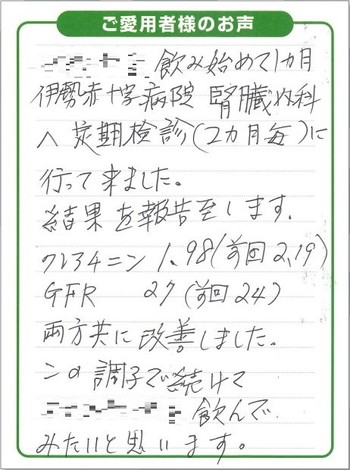 ご愛用者様のお声
飲み始めて1カ月
伊勢赤十字病院 腎臓内科
へ定期検診(2カ月毎)に
行って来ました。
結果を報告至します.
クレアチニン 1.98(前回2.19)
GFR 27 (前回24)
両方共に改善しました。
この調子で続けて
飲んで
みたいと思います。